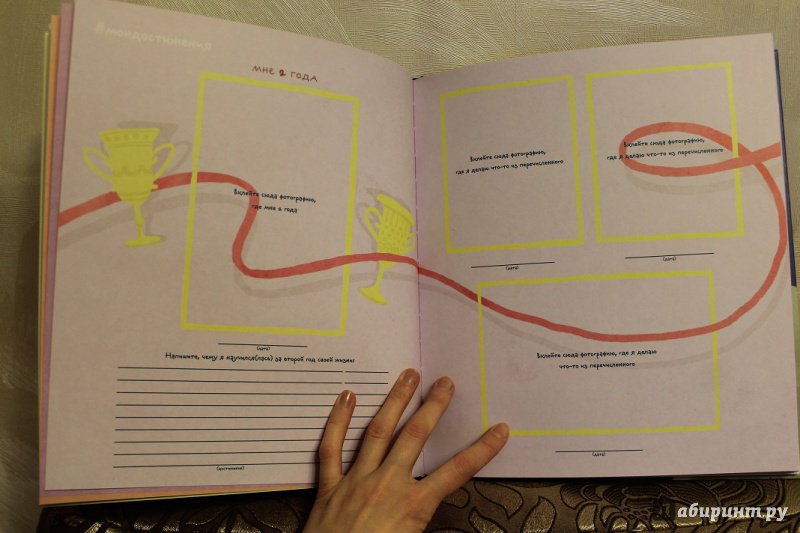 #моидостижения
мне 2 года
Вклейте сюда фотографию,
где мне 2 года
(дата)
Напишите, чему я научился(лась) за второй год своей жизни:
(достижения)
Вклейте сюда фотографию,
где я делаю что-то из перечисленного
(дата)
Вклейте сюда фотографию,
где я делаю что-то из перечисленного
(дата)
Вклейте сюда фотографию, где я делаю
что-то из перечисленного
(дата)
абиринт.ру